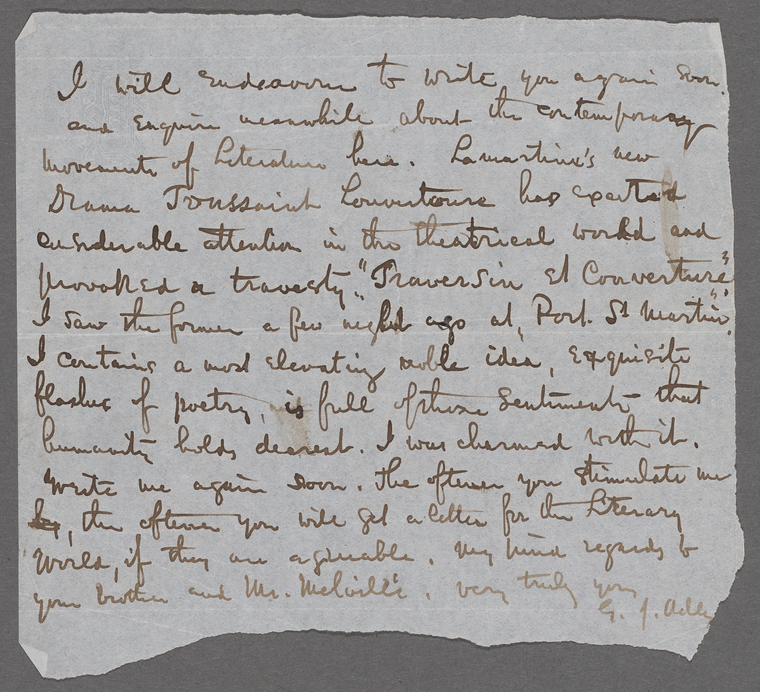 I will endeavour to write you again soon.
and enquire meanwhile about the contemporary
movements of Literature here. Lamartine's new
Drama Toussaint Louverture has excited
considerable attention in the theatrical world and
provoked a travesty "Traversin et Couverture".
I saw the former a few night ago at "Port. St Martin".
I contains a most elevating noble idea, exquisite
flashes of poetry, is full of those sentiments that
humanity holds dearest. I was charmed with it.
Write me again soon. The oftener you stimulate me
the oftener you will get a letter for the Literary
World, if they are agreeable. My kind regards to
your brother and Mr. Melville's. Very truly yours
G. J. Adler